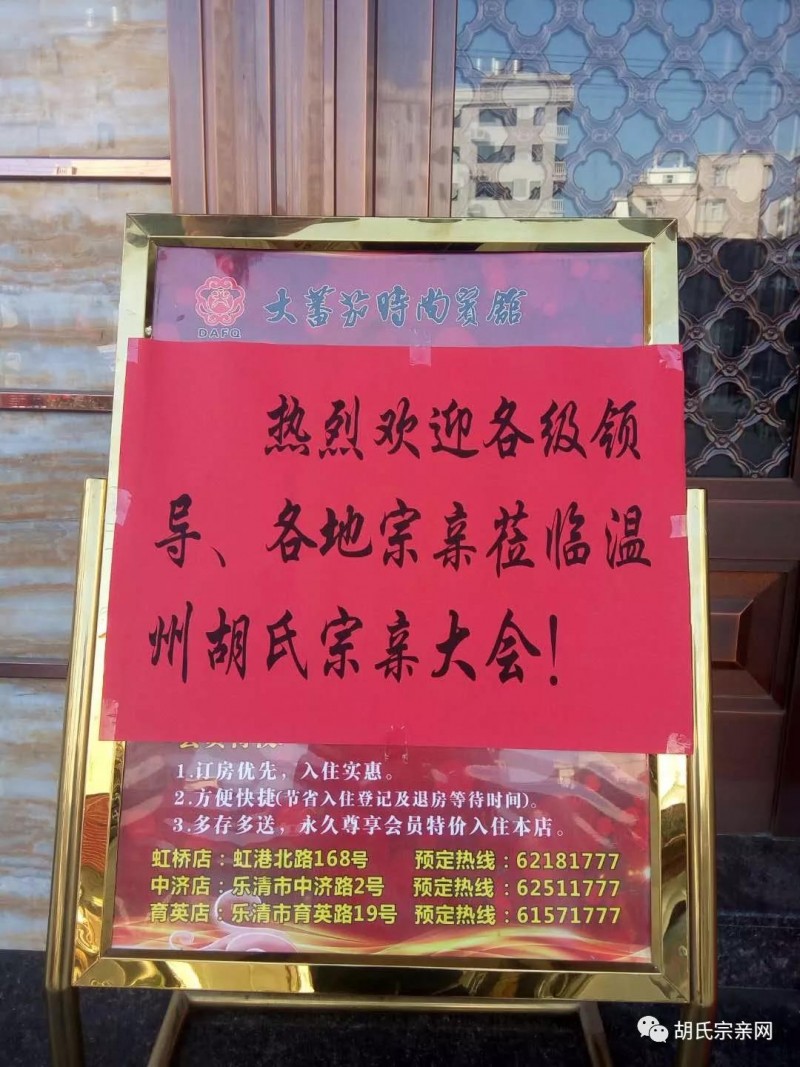 DAFQ
大蕃茄時尚賓館
热烈欢迎各级领
导、各地宗亲莅临温
州胡氏宗亲大会!
1.订房优先，入住实惠。
2.方便快捷(节省入住登记及退房等待时间)。
3.多存多送，永久尊享会员特价入住本店。
虹桥店：虹港北路168号 预定热线：62181777
中济店：乐清市中济路2号 预定热线：62511777
育英店：乐清市育英路19号 预定热线：61571777
胡氏宗亲网